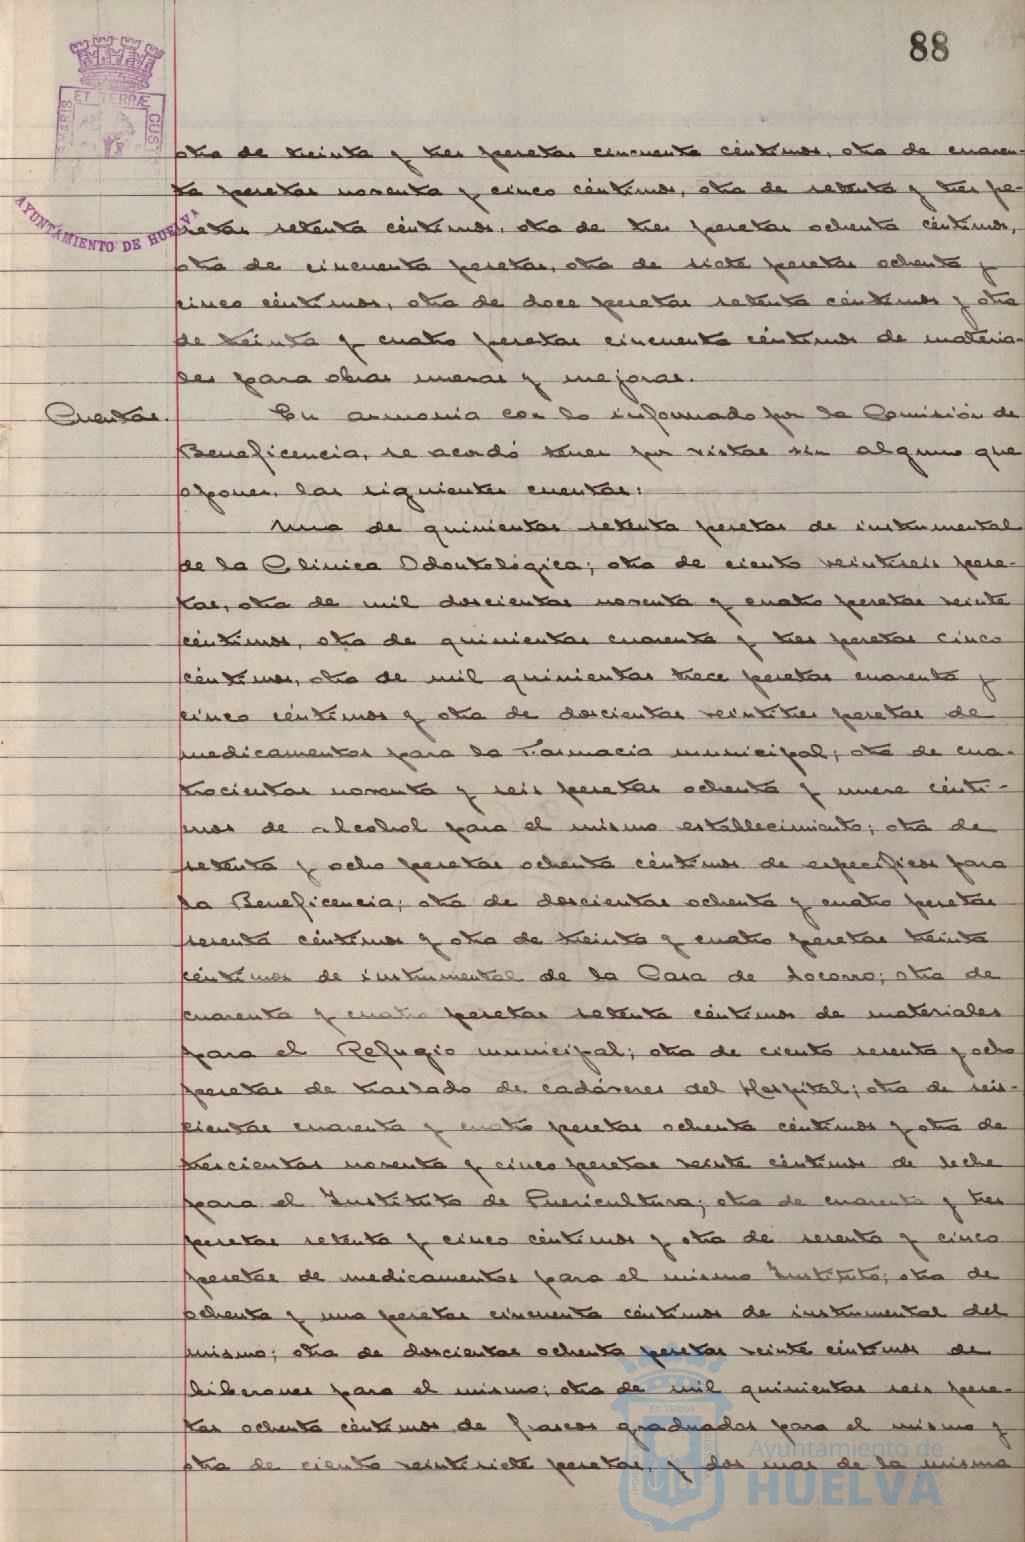 88
ET TERRÆ
MARIS
CUST
AYUNTAMIENTO DE HUELVA
otra de treinta y tres pesetas cincuenta céntimos, otra de cuaren-
ta pesetas noventa y cinco céntimos, otra de setenta y tres pe-
setas setenta céntimos, otra de tres pesetas ochenta céntimos,
otra de cincuenta pesetas, otra de siete pesetas ochenta y
cinco céntimos, otra de doce pesetas setenta céntimos y otra
de treinta y cuatro pesetas cincuenta céntimos de materia-
les para obras nuevas y mejoras.
Cuentas.
En armonía con lo informado por la Comisión de
Beneficencia, se acordó tener por vistas sin alguno que
oponer, las siguientes cuentas:
Una de quinientas setenta pesetas de instrumental
de la Clínica Odontológica; otra de ciento veintiseis pese-
tas, otra de mil doscientas noventa y cuatro pesetas veinte
céntimos, otra de quinientas cuarenta y tres pesetas cinco
céntimos, otra de mil quinientas trece pesetas cuarenta y
cinco céntimos y otra de doscientas veintitres pesetas de
medicamentos para la Farmacia municipal; otra de cua-
trocientas noventa y seis pesetas ochenta y nueve cénti-
mos de alcohol para el mismo establecimiento; otra de
setenta y ocho pesetas ochenta céntimos de específicos para
la Beneficencia; otra de doscientas ochenta y cuatro pesetas
sesenta céntimos y otra de treinta y cuatro pesetas treinta
céntimos de instrumental de la Casa de Socorro; otra de
cuarenta y cuatro pesetas setenta céntimos de materiales
para el Refugio municipal; otra de ciento sesenta y ocho
pesetas de traslado de cadáveres del Hospital; otra de seis-
cientas cuarenta y cuatro pesetas ochenta céntimos y otra de
trescientas noventa y cinco pesetas veinte céntimos de leche
para el Instituto de Puericultura; otra de cuarenta y tres
pesetas setenta y cinco céntimos y otra de sesenta y cinco
pesetas de medicamentos para el mismo Instituto; otra de
ochenta y una pesetas cincuenta céntimos de instrumental del
mismo; otra de doscientas ochenta pesetas veinte céntimos de
biberones para el mismo; otra de mil quinientas seis pese-
tas ochenta céntimos de frascos graduados para el mismo y
otra de ciento veintisiete pesetas, y dos mas de la misma
Ayuntamiento de
HUELVA